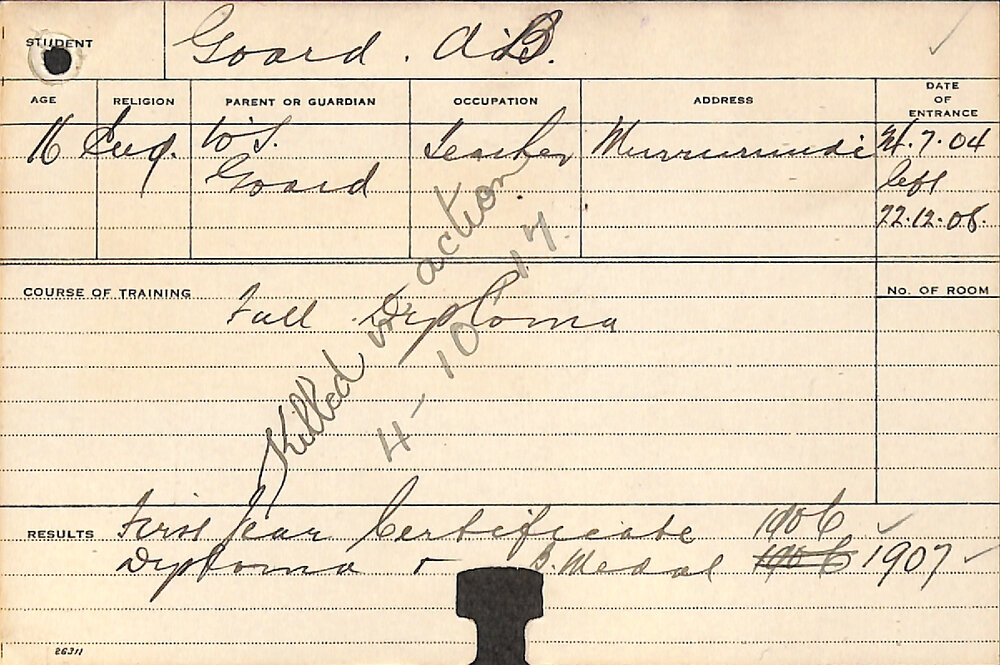 STUDENT Goard. A.B.
AGE RELIGION PARENT OR GUARDIAN OCCUPATION ADDRESS DATE OF ENTRANCE
16 Eng. W.S. Goard Teacher Murrurundi 21.7.04
left
22.12.08.
COURSE OF TRAINING Full Diploma
No. OF ROOM
Killed in action
4-10-17.
RESULTS First Year Certificate 1906
Diploma + B. Medal 1906 1907
26311